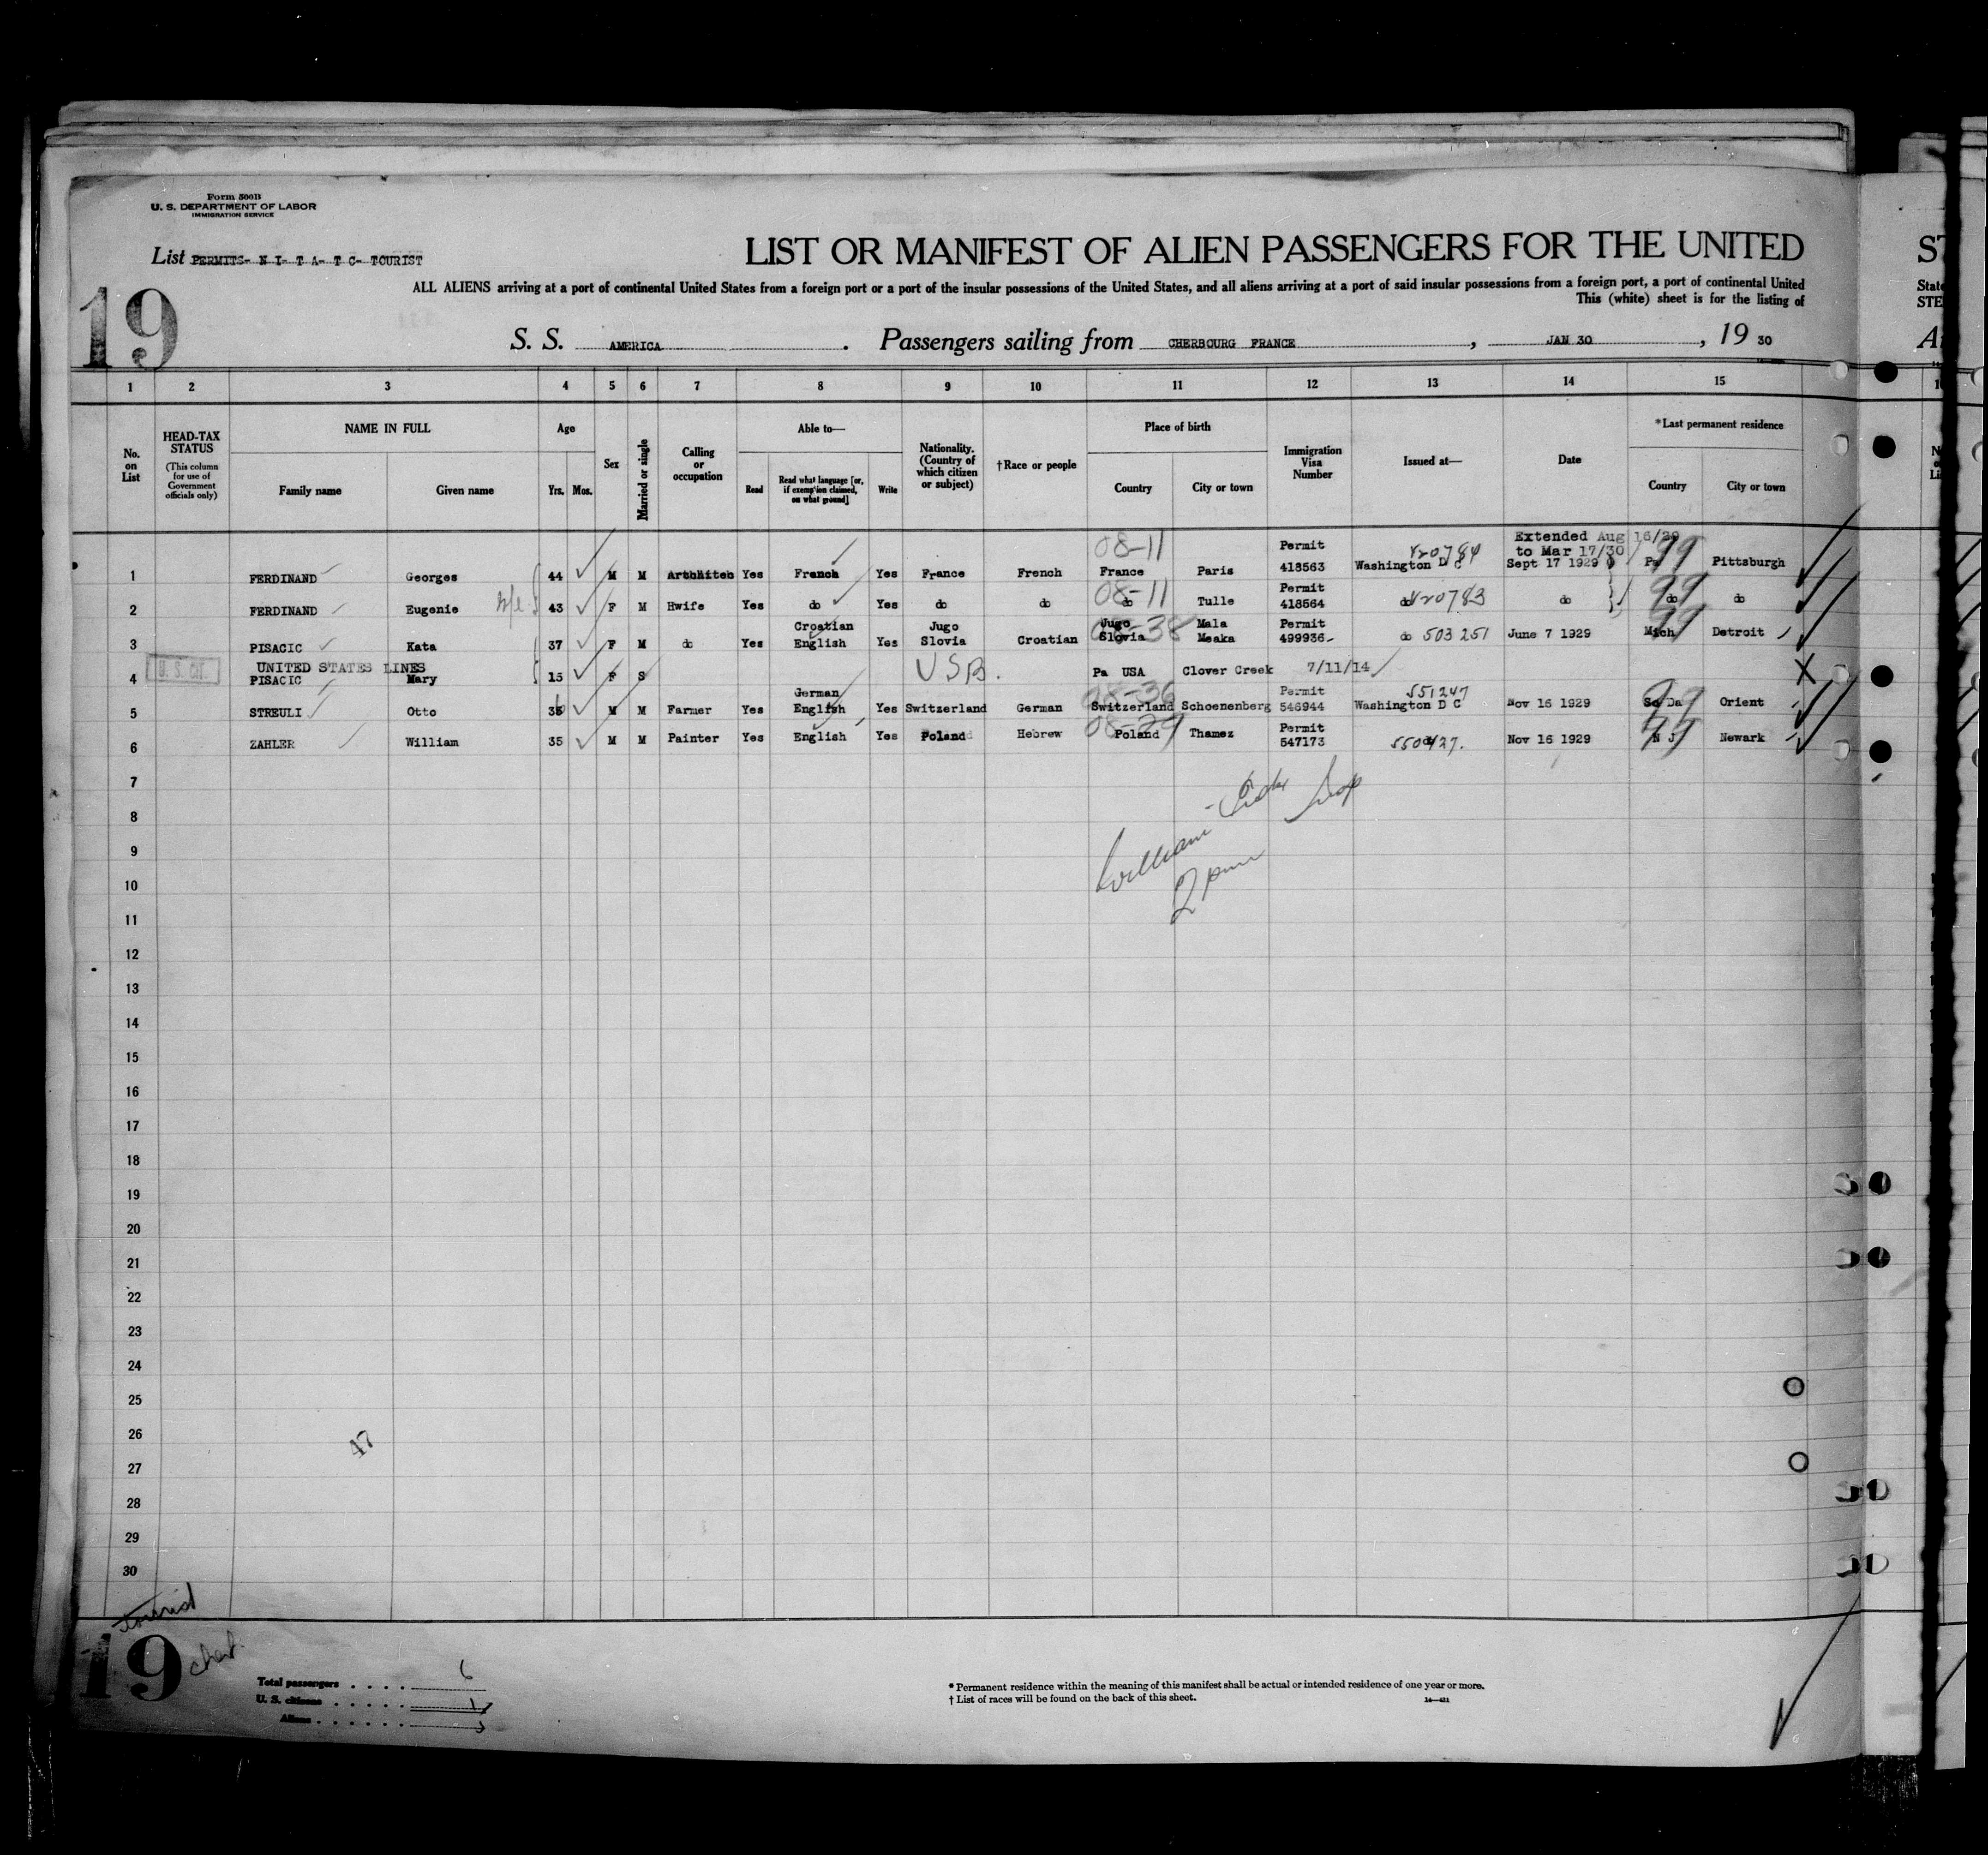 Form 500B
U. S. DEPARTMENT OF LABOR
IMMIGRATION SERVICE
List PERMITS- N I- T A- T C- TOURIST
19
LIST OR MANIFEST OF ALIEN PASSENGERS FOR THE UNITED
ALL ALIENS arriving at a port of continental United States from a foreign port or a port of the insular possessions of the United States, and all aliens arriving at a port of said insular possessions from a foreign port, a port of continental United
This (white) sheet is for the listing of
S. S. AMERICA. Passengers sailing from CHERBOURG FRANCE, JAN 30, 19 30
ST
State
STE
1 2 3 4 5 6 7 8 9 10 11 12 13 14 15
No. on List
HEAD-TAX STATUS (This column for use of Government officials only)
NAME IN FULL Family name Given name
Age Yrs. Mos.
Sex
Married or single
Calling or occupation
Able to— Read Read what language [or, if exemption claimed, on what ground] Write
Nationality. (Country of which citizen or subject)
†Race or people
Place of birth Country City or town
Immigration Visa Number
Issued at—
Date
*Last permanent residence Country City or town
08-11 Permit 420784 Extended Aug 16/29 to Mar 17/30 99
1 FERDINAND Georges 44 M M Architect Yes French Yes France French France Paris 418563 Washington D C Sept 17 1929 Pa Pittsburgh
08-11 Permit 420783 99
2 FERDINAND Eugenie 43 F M Hwife Yes do Yes do do do Tulle 418564 do do do do
Croatian Jugo Jugo Mala Permit 99
3 PISACIC Kata 37 F M do Yes English Yes Slovia Croatian Slovia Meaka 499936 do 503251 June 7 1929 Mich Detroit
U. S. CIT. UNITED STATES LINES
4 PISACIC Mary 15 F S USB. Pa USA Clover Creek 7/11/14
German 08-36 Permit 551247 99
5 STREULI Otto M M Farmer Yes English Yes Switzerland German Switzerland Schoenenberg 546944 Washington D C Nov 16 1929 So Da Orient
08-29 Permit
6 ZAHLER William 35 M M Painter Yes English Yes Poland Hebrew Poland Thamez 547173 Nov 16 1929 N J Newark
7
8
William
9
10
11
12
13
14
15
16
17
18
19
20
21
22
23
24
25
26
47
27
28
29
30
19
Total passengers . . . . 6
U. S. citizens . . . . . 1
Aliens . . . . . . 5
* Permanent residence within the meaning of this manifest shall be actual or intended residence of one year or more.
† List of races will be found on the back of this sheet.